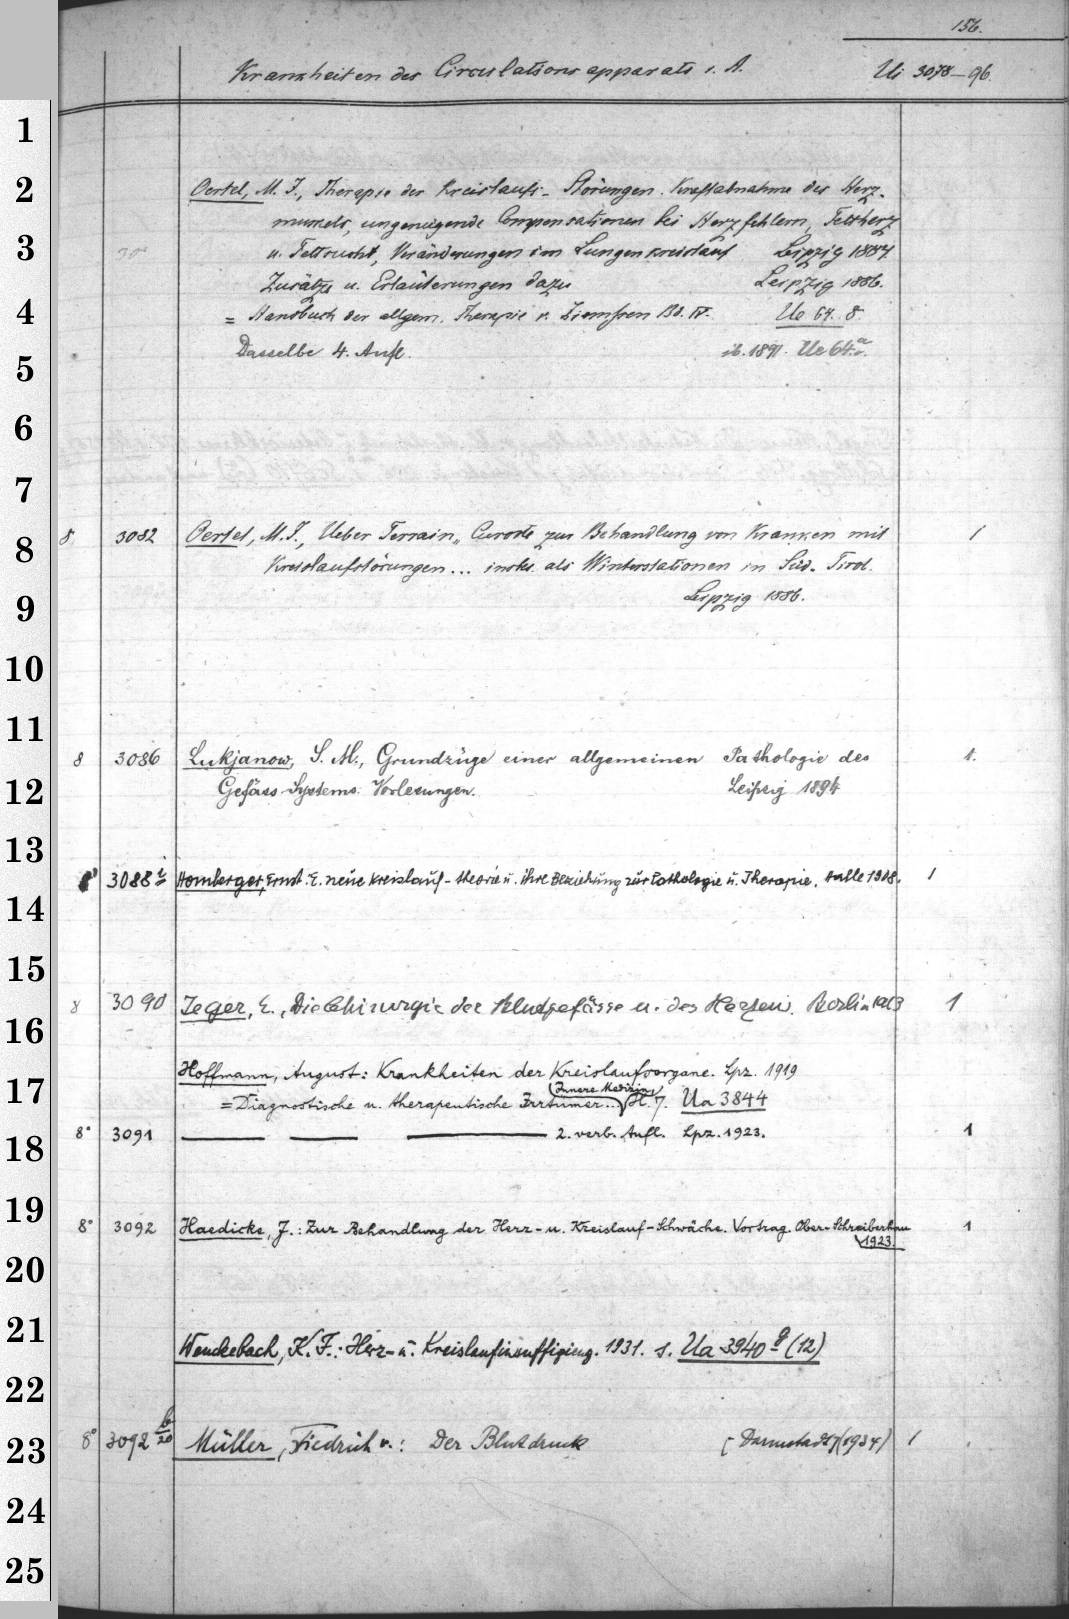 156.
Krankheiten des Circulationsapparats i. A. Ui 3078-96.
1
2
3
4
5
6
7
8
9
10
11
12
13
14
15
16
17
18
19
20
21
22
23
24
25
Oertel, M. J., Therapie der Kreislaufs-Störungen. Kraftabnahme des Herz-
muskels, ungenügende Compensationen bei Herzfehlern, Fettherz
u. Fettsucht, Veränderungen im Lungenkreislauf Leipzig 1884
Zusätze u. Erläuterungen dazu Leipzig 1886.
= Handbuch der allgem. Therapie v. Ziemssen Bd. IV. Ue 64. 8.
Dasselbe 4. Aufl. ib. 1891. Ue 64 a.
8. 3082 Oertel, M. J., Ueber Terrain-Curorte zur Behandlung von Kranken mit 1
Kreislaufstörungen... insbes. als Winterstationen in Süd-Tirol.
Leipzig 1886.
8 3086 Lukjanow, S. M., Grundzüge einer allgemeinen Pathologie des 1.
Gefäss-Systems. Vorlesungen. Leipzig 1894
8° 3088 i Homberger, Ernst: E. neue Kreislauf-theorie u. ihre Beziehung zur Pathologie u. Therapie. Halle 1908. 1
8 3090 Jeger, E., Die Chirurgie der Blutgefässe u. des Herzens. Berlin 1913 1
Hoffmann, August: Krankheiten der Kreislaufsorgane. Lpz. 1919
= Diagnostische u. therapeutische Irrtümer... (Innere Medizin) H. 7. Ua 3844
8° 3091 — — — 2. verb. Aufl. Lpz. 1923. 1
8° 3092 Haedicke, J.: Zur Behandlung der Herz- u. Kreislauf-Schwäche. Vortrag. Ober-Schreiberhau 1
1923.
Wenckebach, K. F.: Herz- u. Kreislaufinsuffizienz. 1931. s. Ua 3940 g (12)
8° 3092 b/20 Müller, Friedrich v.: Der Blutdruck [Darmstadt] (1934) 1